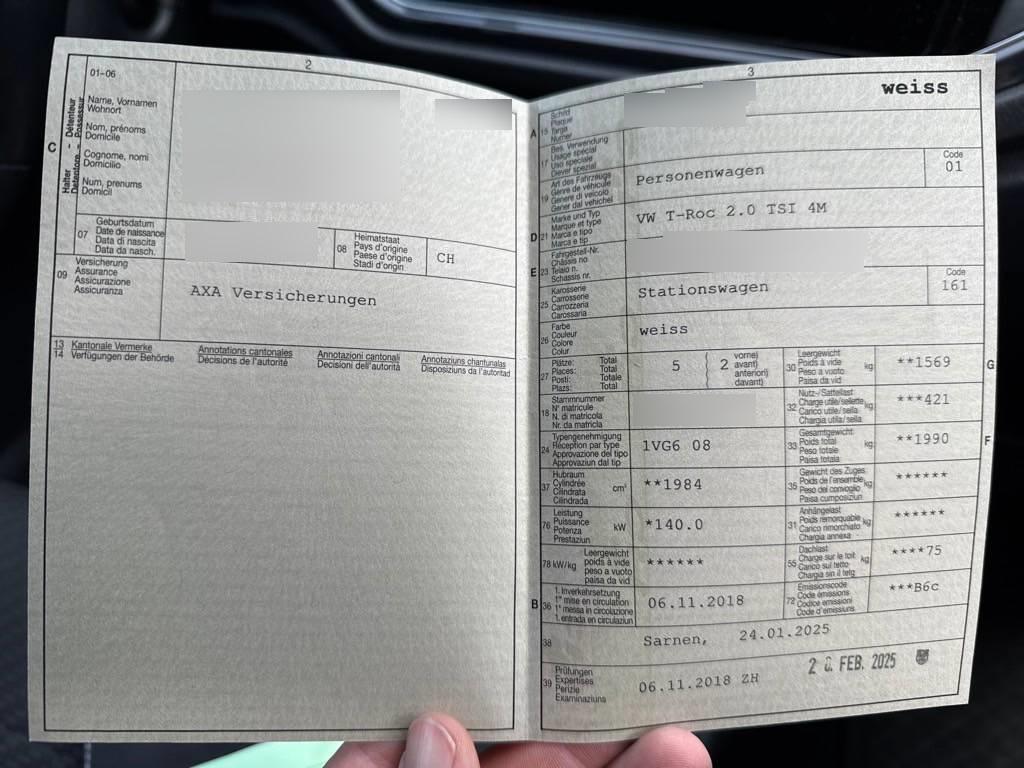 2
01-06
Halter - Détenteur
Detentore - Possessur
C
Name, Vornamen
Wohnort
Nom, prénoms
Domicile
Cognome, nomi
Domicilio
Num, prenums
Domicil
07
Geburtsdatum
Date de naissance
Data di nascita
Data da nasch.
08
Heimatstaat
Pays d'origine
Paese d'origine
Stadi d'origin
CH
09
Versicherung
Assurance
Assicurazione
Assicuranza
AXA Versicherungen
13
14
Kantonale Vermerke
Verfügungen der Behörde
Annotations cantonales
Décisions de l'autorité
Annotazioni cantonali
Decisioni dell'autorità
Annotaziuns chantunalas
Disposiziuns da l'autoritad
3
weiss
A
15
Schild
Plaque
Targa
Numer
17
Bes. Verwendung
Usage spécial
Uso speciale
Diever spezial
19
Art des Fahrzeugs
Genre de véhicule
Genere di veicolo
Gener dal vehichel
Personenwagen
Code
01
D
21
Marke und Typ
Marque et type
Marca e tipo
Marca e tip
VW T-Roc 2.0 TSI 4M
E
23
Fahrgestell-Nr.
Châssis no
Telaio n.
Schassis nr.
25
Karosserie
Carrosserie
Carrozzeria
Carossaria
Stationswagen
Code
161
26
Farbe
Couleur
Colore
Colur
weiss
27
Plätze: Total
Places: Total
Posti: Totale
Plazs: Total
5
2
vorne)
avant)
anteriori)
davant)
30
Leergewicht
Poids à vide
Peso a vuoto
Paisa da vid
kg
**1569
G
18
Stammnummer
N° matricule
N. di matricola
Nr. da matricla
32
Nutz-/Sattellast
Charge utile/sellette
Carico utile/sella
Chargia utila/sella
kg
***421
24
Typengenehmigung
Réception par type
Approvazione del tipo
Approvaziun dal tip
1VG6 08
33
Gesamtgewicht
Poids total
Peso totale
Paisa totala
kg
**1990
F
37
Hubraum
Cylindrée
Cilindrata
Cilindrada
cm³
**1984
35
Gewicht des Zuges
Poids de l'ensemble
Peso del convoglio
Paisa cumposiziun
kg
******
76
Leistung
Puissance
Potenza
Prestaziun
kW
*140.0
31
Anhängelast
Poids remorquable
Carico rimorchiato
Chargia annexa
kg
******
78 kW/kg
Leergewicht
poids à vide
peso a vuoto
paisa da vid
******
55
Dachlast
Charge sur le toit
Carico sul tetto
Chargia sin il tetg
kg
****75
B
36
1. Inverkehrsetzung
1re mise en circulation
1a messa in circolazione
1. entrada en circulaziun
06.11.2018
72
Emissionscode
Code émissions
Codice emissioni
Code d'emissiuns
***B6c
38
Sarnen, 24.01.2025
39
Prüfungen
Expertises
Perizie
Examinaziuns
06.11.2018 ZH
FEB. 2025